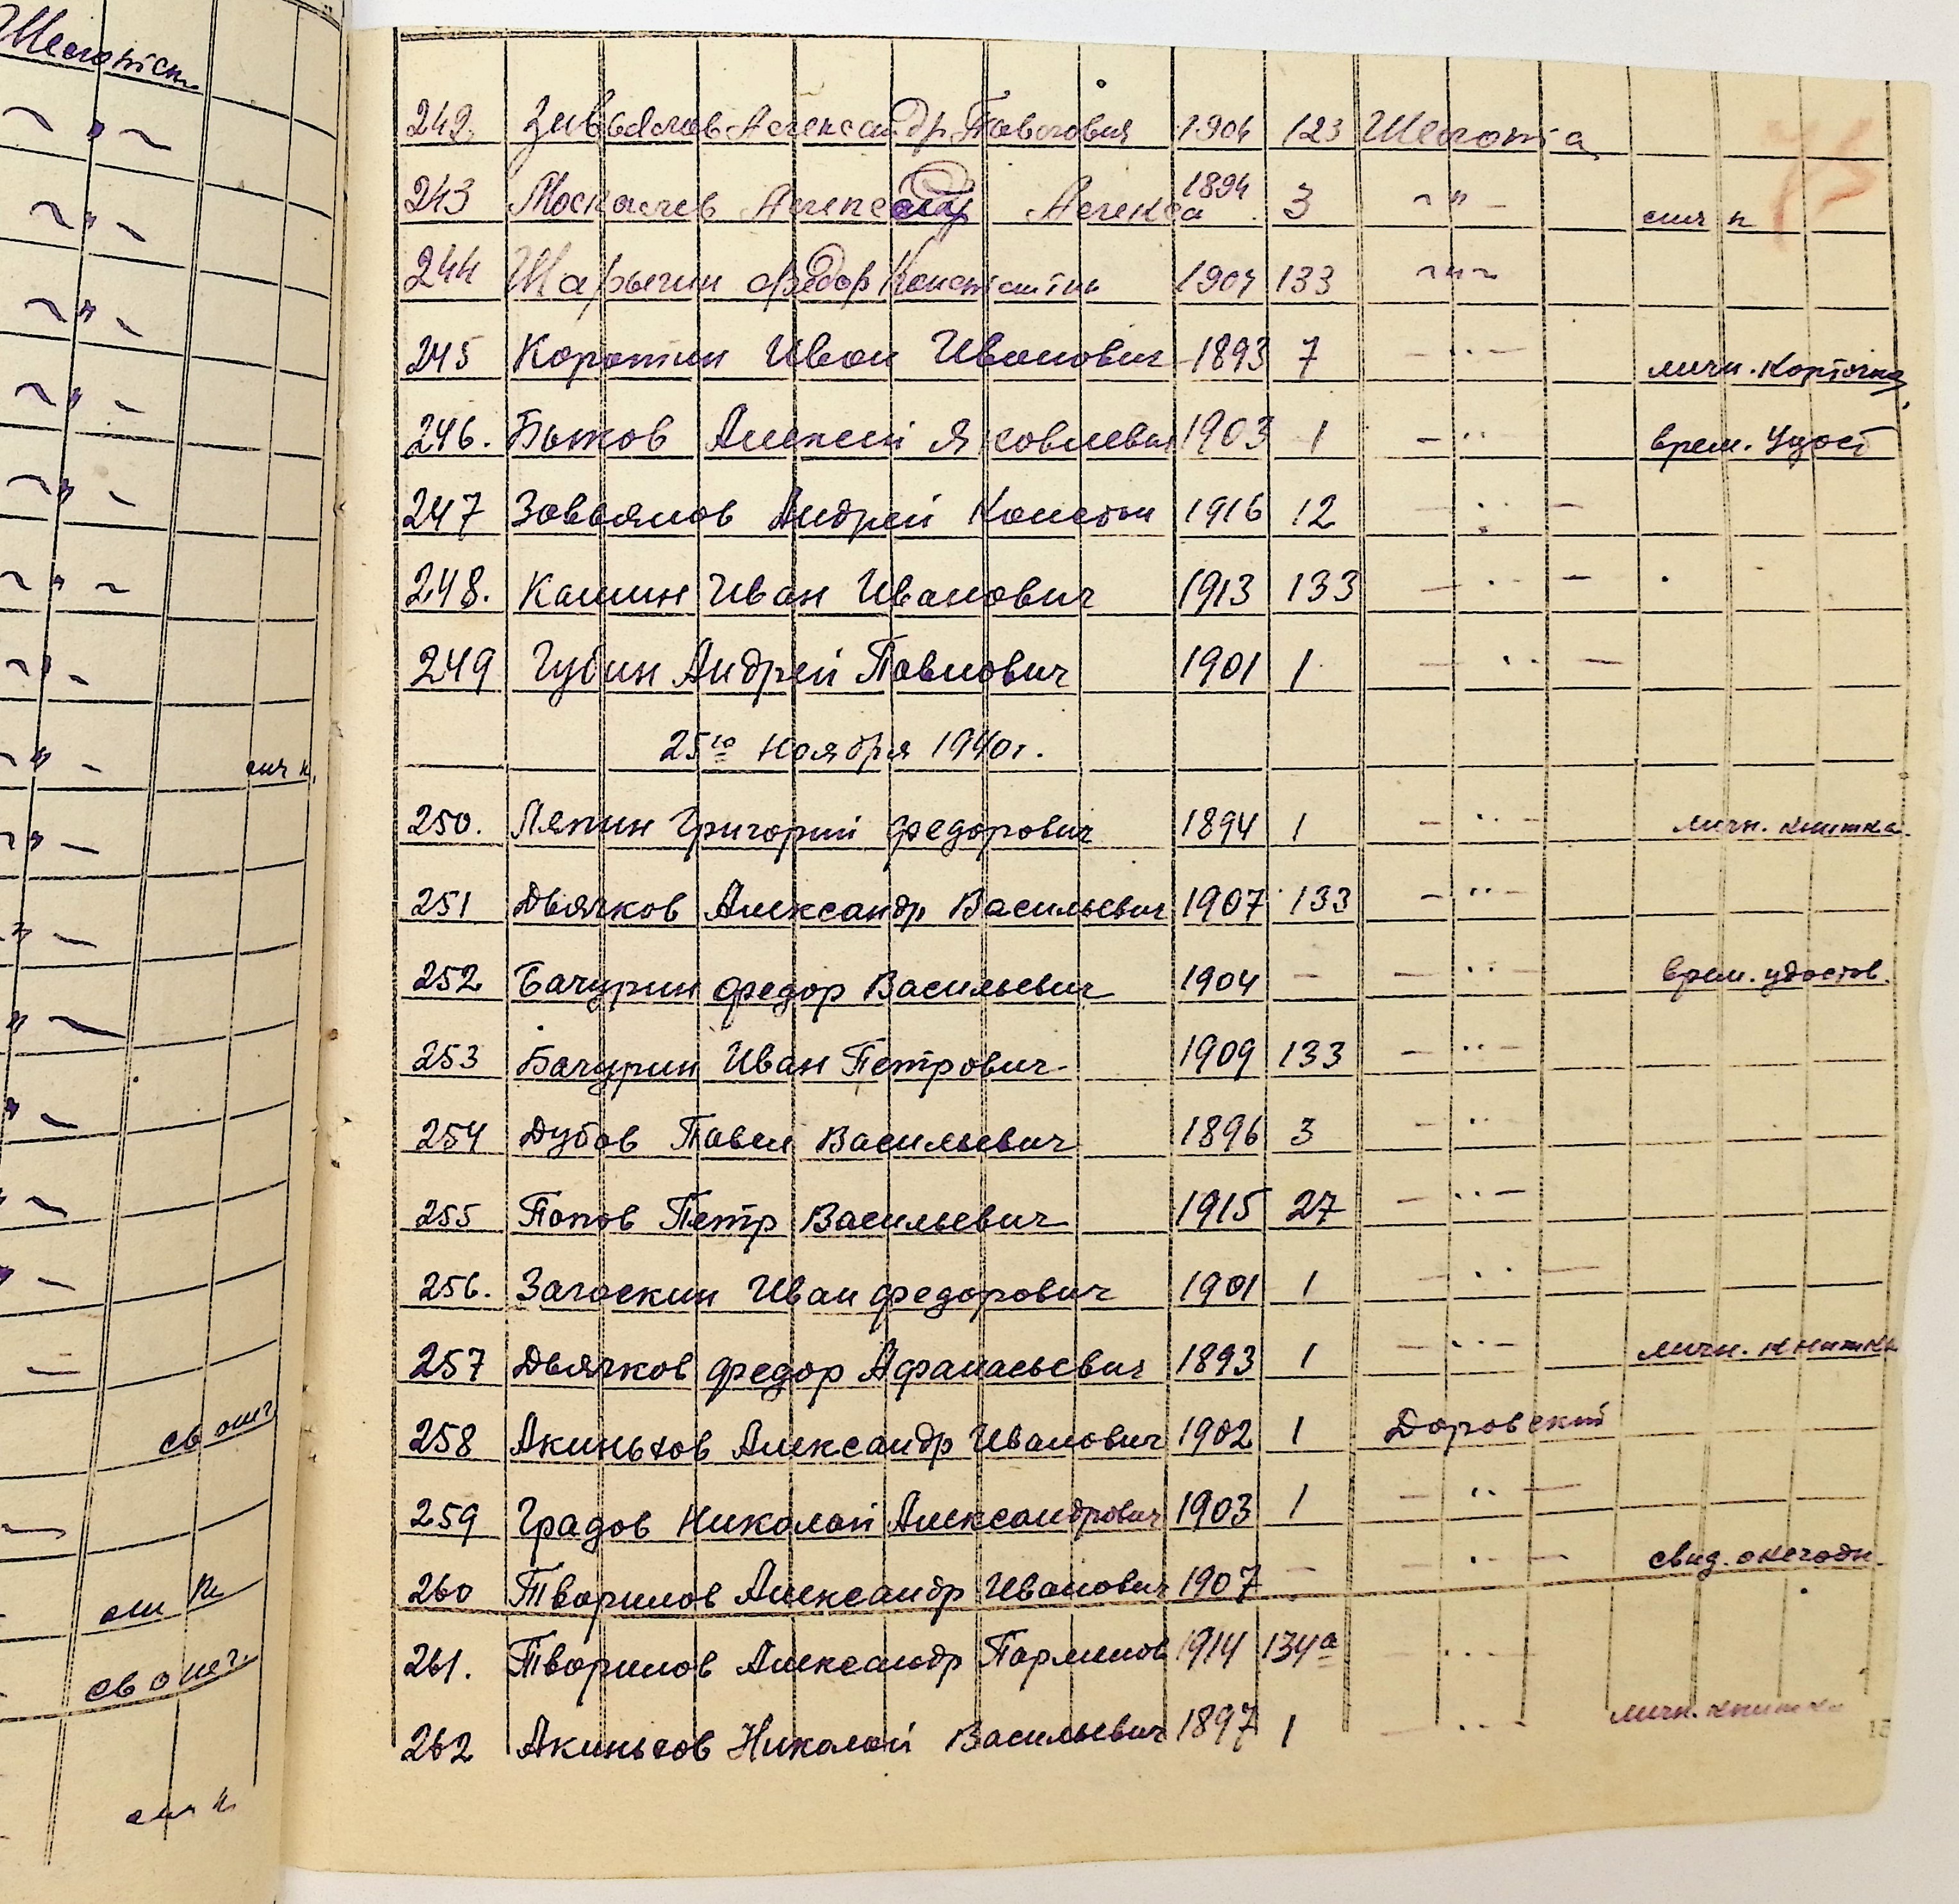 242. Завьялов Александр Павлович 1904 123 Шегопта
243 Москалев Александр Алекса 1894 3 ~"- лич к
244 Шарыгин Федор Константин 1904 133 ~"~
245 Коротин Иван Иванович 1893 7 -"- личн. карточка
246. Бытов Алексей Яковлевич 1903 1 -"- врем. Удост
247 Завьялов Андрей Констан 1916 12 -"-
248. Кашин Иван Иванович 1913 133 -"-
249 Губин Андрей Павлович 1901 1 -"-
25го Ноября 1940г.
250. Ляпин Григорий Федорович 1894 1 -"- личн. книжка
251 Дьячков Александр Васильевич 1907 133 -"-
252 Бачурин Федор Васильевич 1904 - -"- врем. удостов.
253 Бачурин Иван Петрович 1909 133 -"-
254 Дубов Павел Васильевич 1896 3 -"-
255 Попов Петр Васильевич 1915 27 -"-
256. Загоскин Иван Федорович 1901 1 -"-
257 Дьячков Федор Афанасьевич 1893 1 -"- личн. книжка
258 Акиньхов Александр Иванович 1902 1 Доровский
259 Градов Николай Александрович 1903 1 -"-
260 Творилов Александр Иванович 1907 - -"- свид. о негодн.
261. Творилов Александр Парменов 1914 134а -"-
262 Акиньхов Николай Васильевич 1897 1 -"- личн. книжка